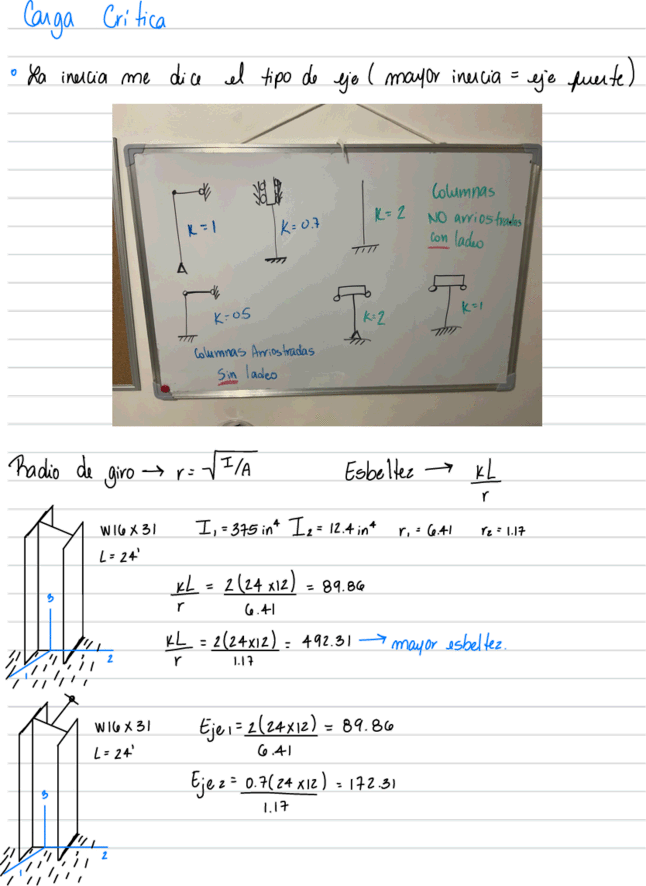 Carga Crítica
° La inercia me dice el tipo de eje (mayor inercia = eje fuerte)
K=1
K=0.7
K=2
Columnas
NO arriostradas
con ladeo
K=05
K=2
K=1
Columnas Arriostradas
Sin ladeo
Radio de giro → r = √I/A
Esbeltez → kL/r
W16 x 31
L = 24'
I₁ = 375 in⁴ I₂ = 12.4 in⁴ r₁ = 6.41 r₂ = 1.17
kL/r = 2(24 x12)/6.41 = 89.86
kL/r = 2(24x12)/1.17 = 492.31 → mayor esbeltez.
3
1
2
W16 x 31
L = 24'
Eje 1 = 2(24x12)/6.41 = 89.86
Eje 2 = 0.7(24 x12)/1.17 = 172.31
3
1
2